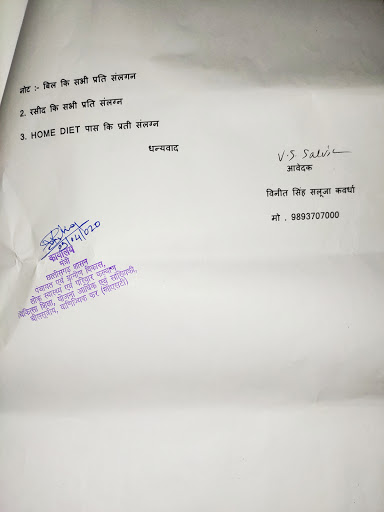 नोट :- बिल कि सभी प्रति संलगन
2. रसीद कि सभी प्रति संलग्न
3. HOME DIET पास कि प्रती संलग्न
धन्यवाद
V.S. Saluja
आवेदक
विनीत सिंह सलूजा कवर्धा
मो . 9893707000
03/04/020
कार्यालय
मंत्री
छत्तीसगढ़ शासन
पंचायत एवं ग्रामीण विकास,
लोक स्वास्थ्य एवं परिवार कल्याण
चिकित्सा शिक्षा, योजना आर्थिक एवं सांख्यिकी,
बीससूत्रीय, वाणिज्यिक कर (जीएसटी)